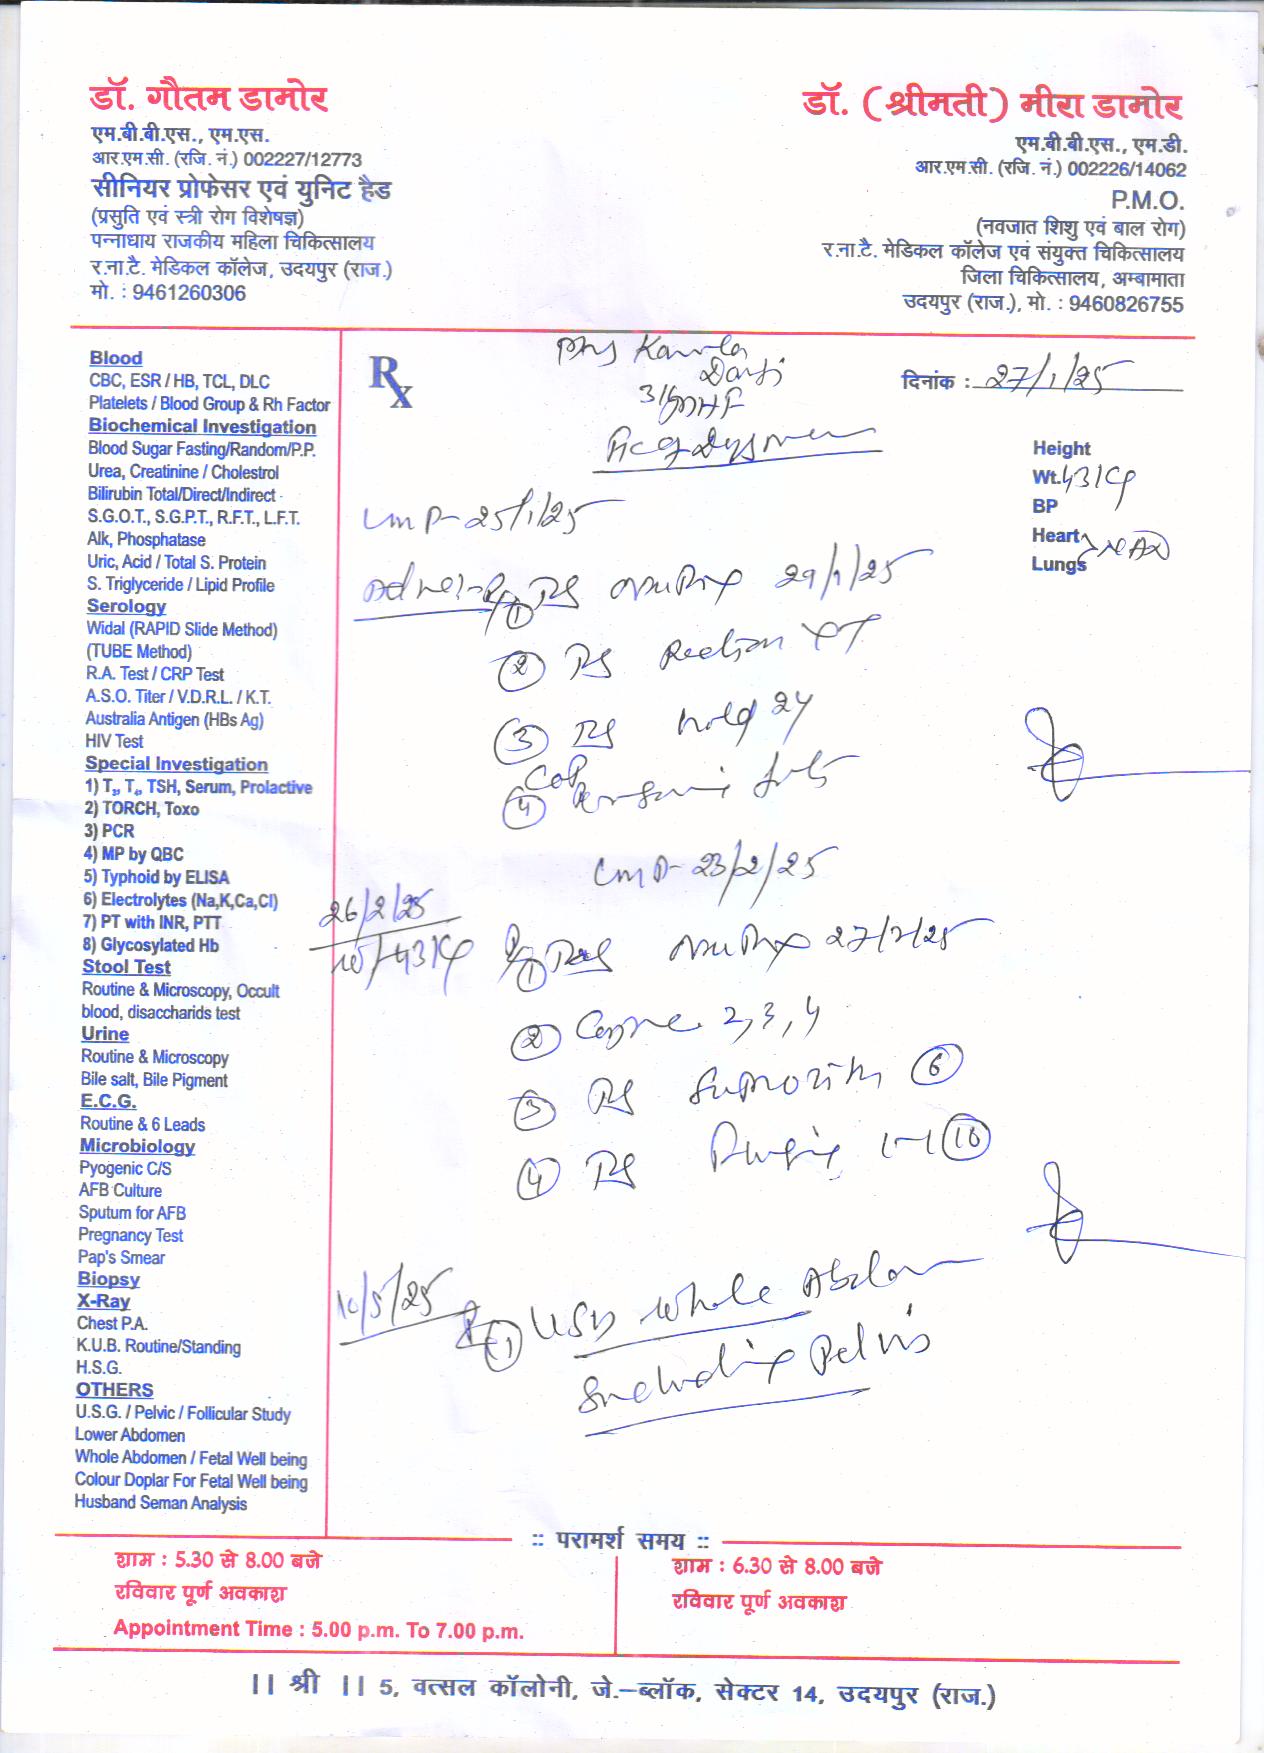 डॉ. गौतम डामोर
एम.बी.बी.एस., एम.एस.
आर.एम.सी. (रजि. नं.) 002227/12773
सीनियर प्रोफेसर एवं युनिट हैड
(प्रसुति एवं स्त्री रोग विशेषज्ञ)
पन्नाधाय राजकीय महिला चिकित्सालय
र.ना.टै. मेडिकल कॉलेज, उदयपुर (राज.)
मो. : 9461260306
डॉ. (श्रीमती) मीरा डामोर
एम.बी.बी.एस., एम.डी.
आर.एम.सी. (रजि. नं.) 002226/14062
P.M.O.
(नवजात शिशु एवं बाल रोग)
र.ना.टै. मेडिकल कॉलेज एवं संयुक्त चिकित्सालय
जिला चिकित्सालय, अम्बामाता
उदयपुर (राज.), मो. : 9460826755
Blood
CBC, ESR / HB, TCL, DLC
Platelets / Blood Group & Rh Factor
Biochemical Investigation
Blood Sugar Fasting/Random/P.P.
Urea, Creatinine / Cholestrol
Bilirubin Total/Direct/Indirect
S.G.O.T., S.G.P.T., R.F.T., L.F.T.
Alk, Phosphatase
Uric, Acid / Total S. Protein
S. Triglyceride / Lipid Profile
Serology
Widal (RAPID Slide Method)
(TUBE Method)
R.A. Test / CRP Test
A.S.O. Titer / V.D.R.L. / K.T.
Australia Antigen (HBs Ag)
HIV Test
Special Investigation
1) T₃, T₄, TSH, Serum, Prolactive
2) TORCH, Toxo
3) PCR
4) MP by QBC
5) Typhoid by ELISA
6) Electrolytes (Na,K,Ca,Cl)
7) PT with INR, PTT
8) Glycosylated Hb
Stool Test
Routine & Microscopy, Occult
blood, disaccharids test
Urine
Routine & Microscopy
Bile salt, Bile Pigment
E.C.G.
Routine & 6 Leads
Microbiology
Pyogenic C/S
AFB Culture
Sputum for AFB
Pregnancy Test
Pap's Smear
Biopsy
X-Ray
Chest P.A.
K.U.B. Routine/Standing
H.S.G.
OTHERS
U.S.G. / Pelvic / Follicular Study
Lower Abdomen
Whole Abdomen / Fetal Well being
Colour Doplar For Fetal Well being
Husband Seman Analysis
Rx
Kamla
दिनांक : 27/1/25
Height
Wt. 43 kg
BP
Heart
Lungs NAD
LMP- 25/1/25
① 29/1/25
②
③
④
LMP- 23/2/25
26/2/25
wt 43 kg
① 27/2/25
② 2,3,4
③ ⑥
④ 1-1 ⑩
10/5/25
① USG whole Abdo
Including Pelvis
:: परामर्श समय ::
शाम : 5.30 से 8.00 बजे
रविवार पूर्ण अवकाश
Appointment Time : 5.00 p.m. To 7.00 p.m.
शाम : 6.30 से 8.00 बजे
रविवार पूर्ण अवकाश
|| श्री || 5, वत्सल कॉलोनी, जे.–ब्लॉक, सेक्टर 14, उदयपुर (राज.)